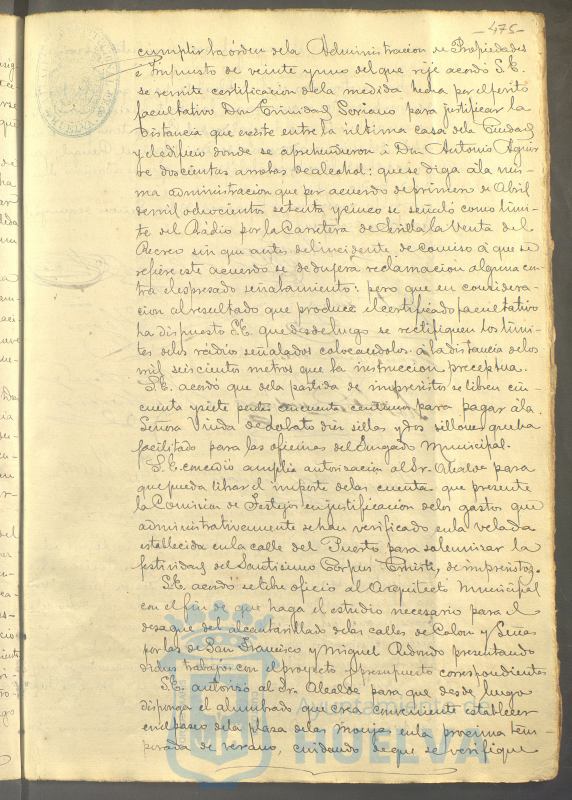 -475-
cumplir la órden dela Administracion de Propiedades
é Impuesto de veinte y uno del que rije acordó S.E.
se remite certificacion dela medida hecha por el perito
facultativo Don Trinidad Soriano para justificar la
distancia que existe entre la última casa dela Ciudad
y el edificio donde se aprehendieron á Don Antonio Aguir
re doscientas arrobas de alcohol: que se diga á la mis-
ma administracion que por acuerdo de primero de Abril
de mil ochocientos setenta y cinco se señaló como lími-
te del Rádio por la Carretera de Sevilla la Venta del
Recreo sin que antes del incidente de comiso á que se
refiere este acuerdo se dedujera reclamacion alguna con-
tra el espresado señalamiento: pero que en considera-
cion al resultado que produce el certificado facultativo
ha dispuesto S.E. que desde luego se rectifiquen los lími-
tes delos rádios señalados colocandolos á la distancia delos
mil seiscientos metros que la instruccion preceptua.
S.E. acordó que dela partida de imprevistos se libren cin-
cuenta y siete pesetas cincuenta centimos para pagar á la
Señora Viuda de dobato diez sillas y dos sillones que ha
facilitado para las oficinas del Juzgado Municipal.
S.E. concedió amplia autorizacion al Sr. Alcalde para
que pueda librar el importe delas cuenta que presente
la Comision de Festejos en justificacion delos gastos que
administrativamente se han verificado en la velada
establecida en la calle del Puerto para solemnizar la
festividad del Santisimo Corpus Christi, de imprevistos.
S.E. acordó se libre oficio al Arquitecto Municipal
con el fin de que haga el estudio necesario para el
desague del alcantarillado delas calles de Colon y Señas
por las de San Francisco y Miguel Redondo presentando
dichos trabajos con el proyecto y presupuesto correspondientes
S.E. autorizó al Sr. Alcalde para que desde luego
disponga el alumbrado que crea conveniente establecer
en el paseo dela plaza delas Monjas en la procsima tem-
porada de verano, cuidando de que se verifique
Ayuntamiento de
HUELVA